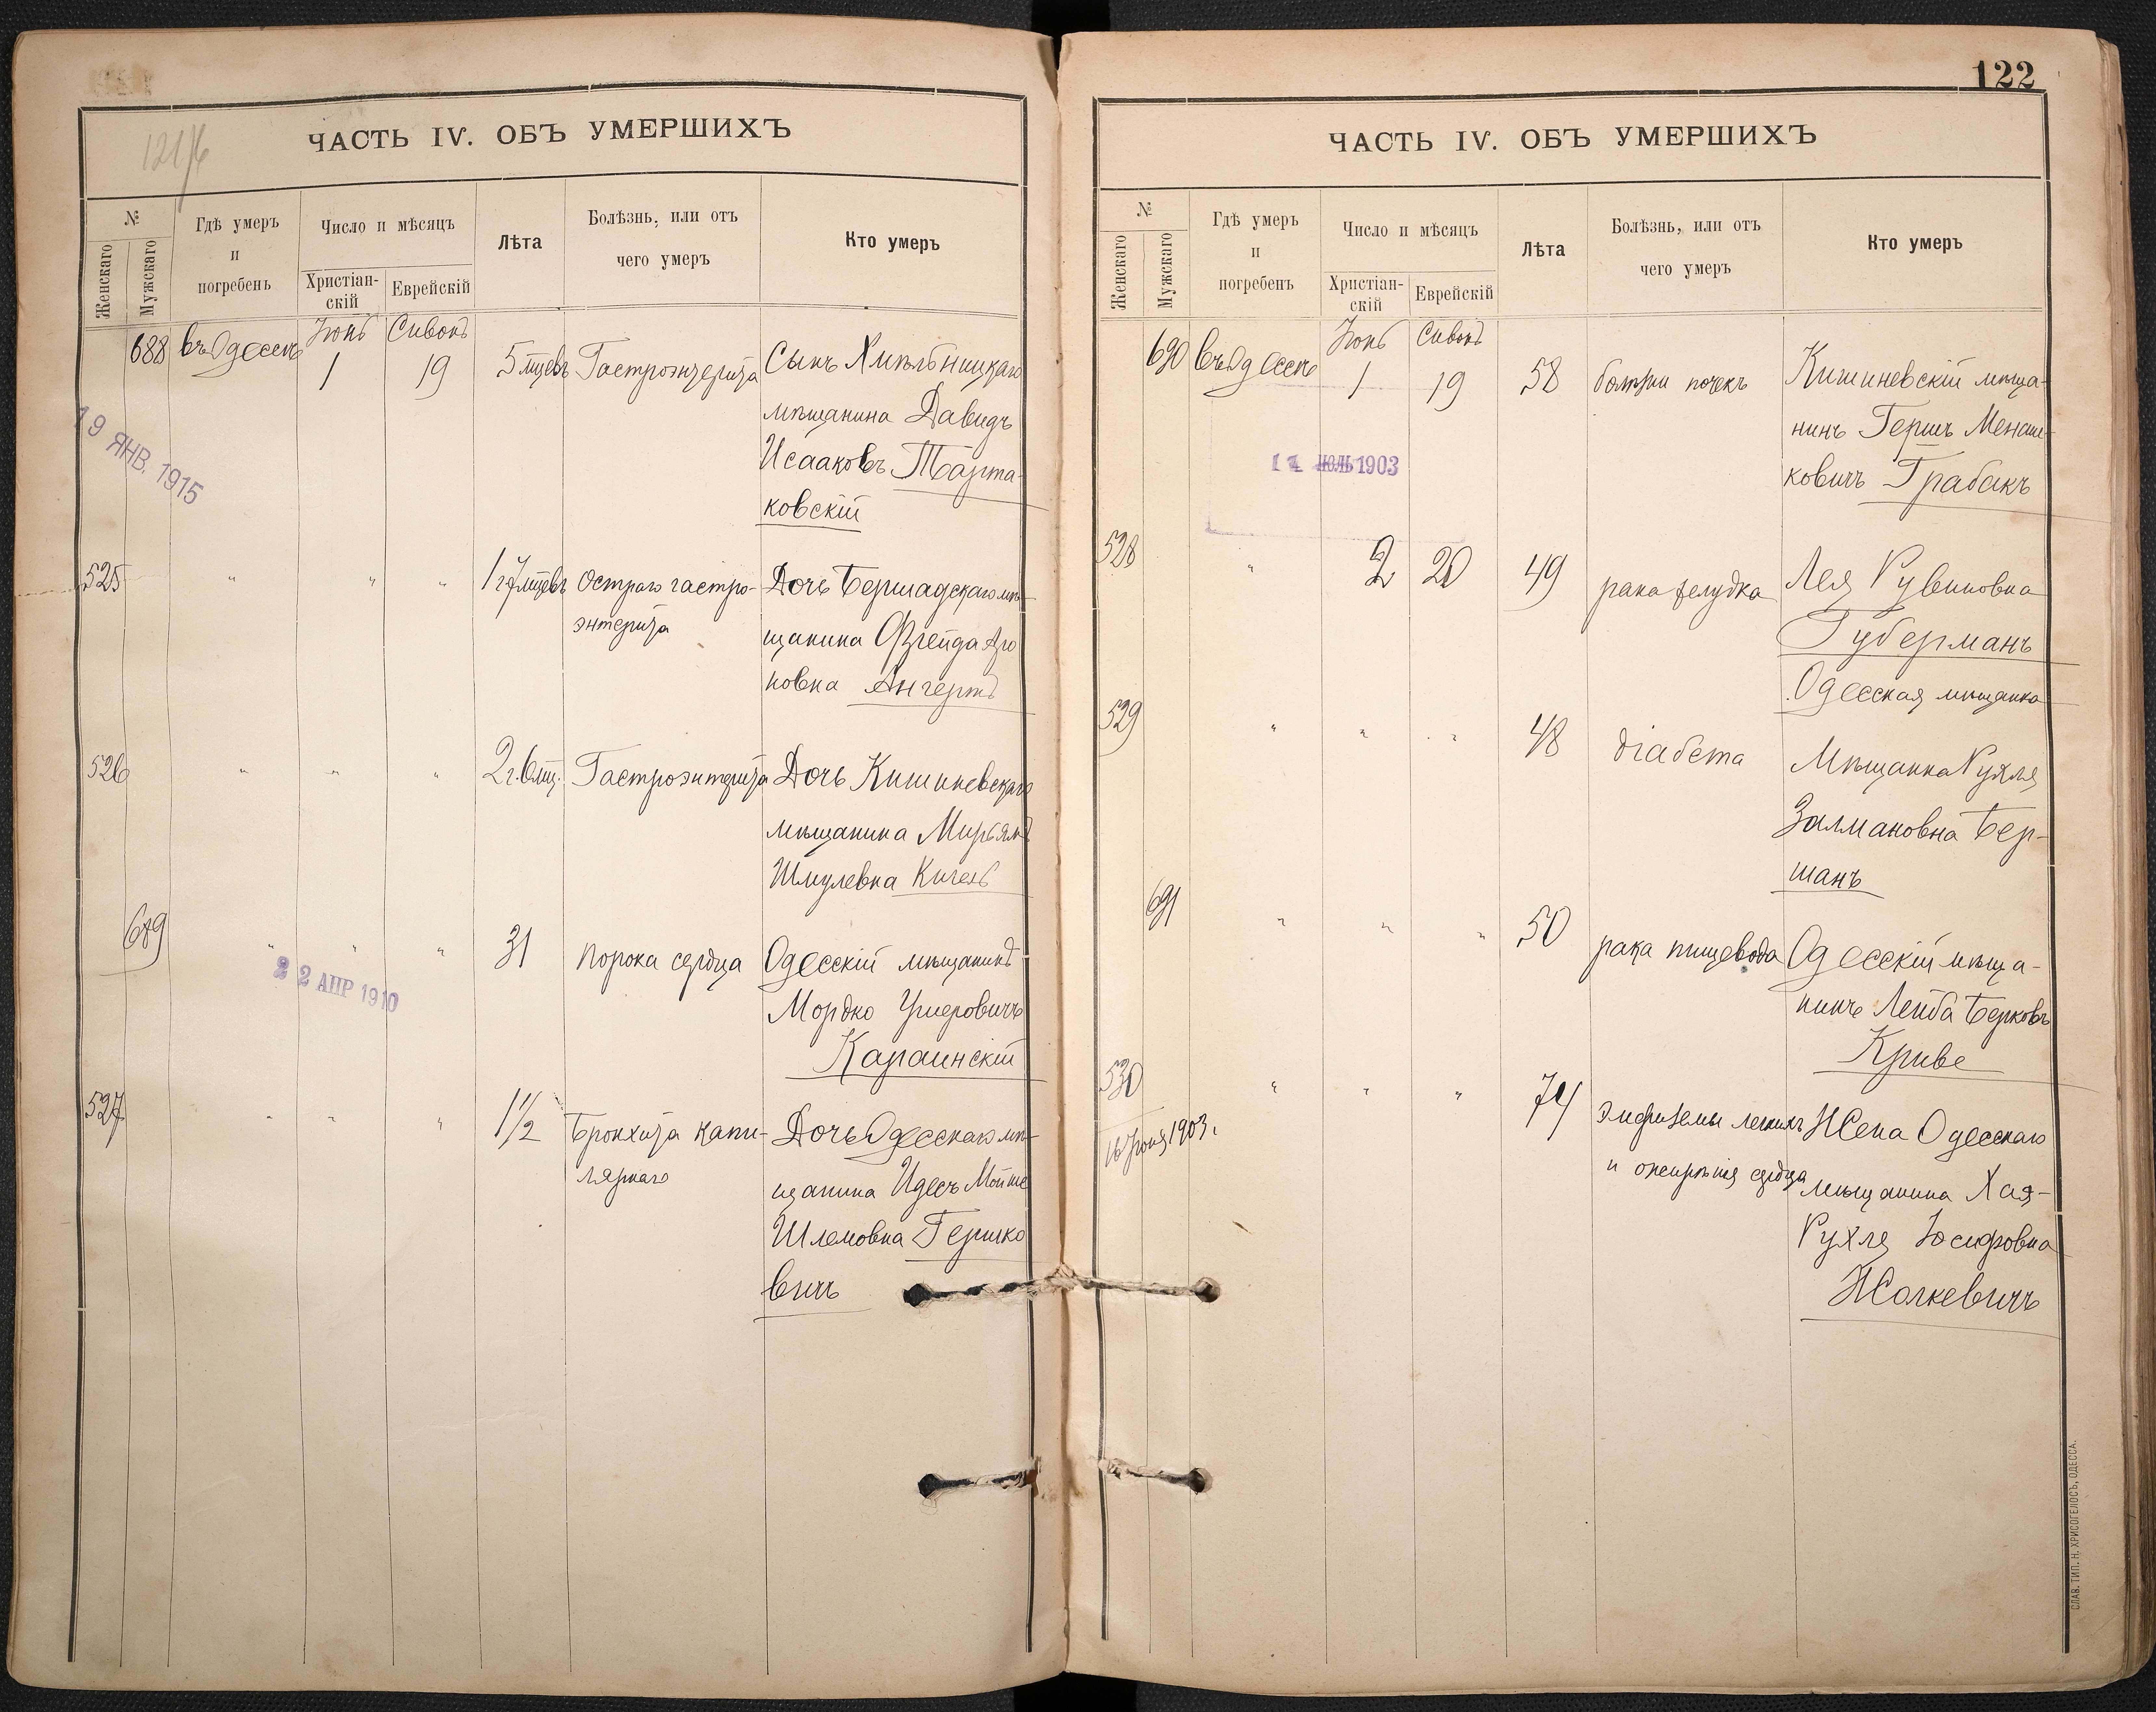 121/б
ЧАСТЬ IV. ОБЪ УМЕРШИХЪ
№
Женскаго
Мужскаго
Гдѣ умеръ
и
погребенъ
Число и мѣсяцъ
Христіан-
скій
Еврейскій
Лѣта
Болѣзнь, или отъ
чего умеръ
Кто умеръ
688 въ Одессѣ Іюнь 1 Сивонъ 19 5 мцевъ Гастроэнтерита Сынъ Хмѣльницкаго
мѣщанина Давидъ
Исааковъ Тарта-
ковскій
19 ЯНВ. 1915
525 " " " 1 г 7 мцевъ Остраго гастро- Дочь Бершадскаго мѣ-
энтерита
щанина Фрейда Аро
новна Ангертъ
526 " " " 2 г. 6 мц. Гастроэнтерита Дочь Кишиневскаго
мѣщанина Мирьямъ
Шмулевна
689 " " " 31 порока сердца Одесскій мѣщанинъ
Мордко Ушеровичъ
Караинскій
22 АПР 1910
527 " " " 1 1/2 Бронхита капи- Дочь Одесскаго мѣ-
лярнаго
щанина Идесъ Мойше
Шлемовна Гершко
вичъ
122
ЧАСТЬ IV. ОБЪ УМЕРШИХЪ
№
Женскаго
Мужскаго
Гдѣ умеръ
и
погребенъ
Число и мѣсяцъ
Христіан-
скій
Еврейскій
Лѣта
Болѣзнь, или отъ
чего умеръ
Кто умеръ
690 въ Одессѣ Іюнь 1 Сивонъ 19 58 почекъ Кишиневскій мѣща-
нинъ Гершъ Менаше-
ковичъ Грабакъ
ІЮЛЬ 1903
528 " 2 20 49 рака желудка Лея Рувиновна
Губерманъ
Одесская мѣщанка
529 " " " 48 діабета Мѣщанка Рухля
Залмановна Бер-
шанъ
691 " " " 50 рака пищевода Одесскій мѣща-
нинъ Лейба Берковъ
Криве
530 " " " 74 эмфиземы легкихъ Жена Одесскаго
и ожирѣнія сердца
мѣщанина Хая-
Рухля Іосифовна
Жолкевичъ
16 Іюня 1903 г.
СЛАВ. ТИП. Н. ХРИСОГЕЛОСЪ, ОДЕССА.